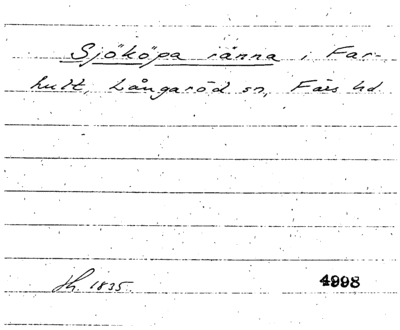 Sjököpa ränna i Far-
hult, Långaröd sn, Färs hd
Th. 1835.
4998